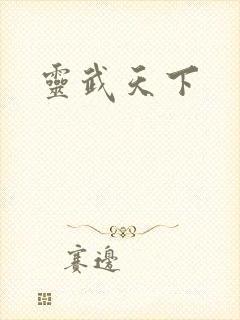 靈武天下
賽邊